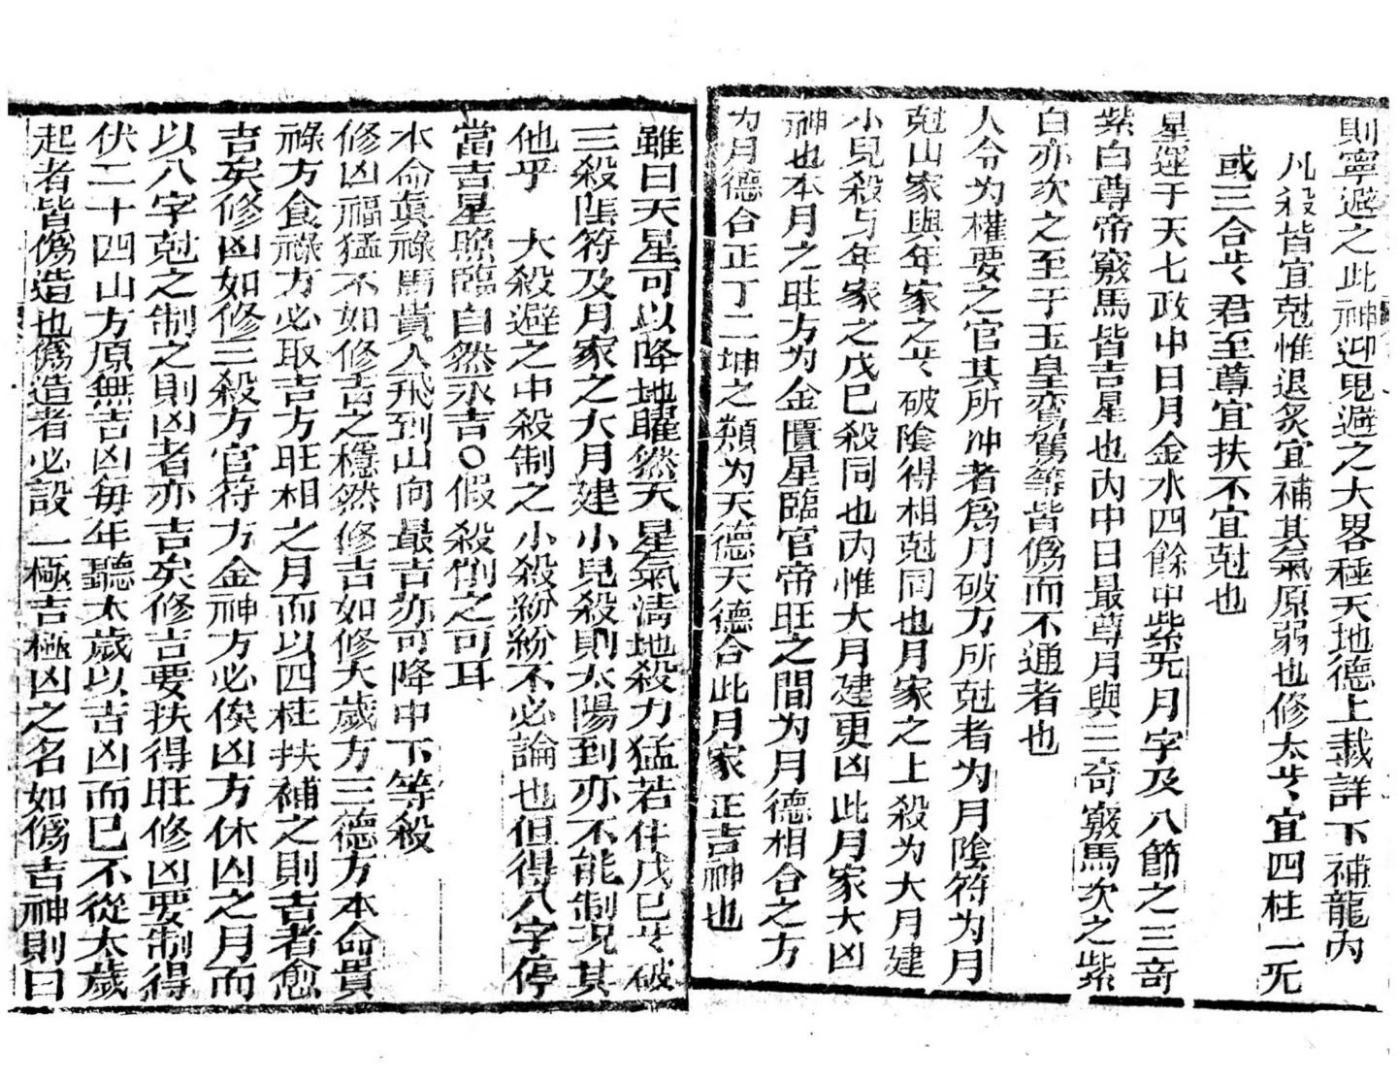 則寧避之此神迎鬼避之大畧種天地德上載詳下補龍內
凡殺皆宜尅惟退炙宜補其氣原弱也修太歲宜四柱一炁
或三合歲君至尊宜扶不宜尅也
星運于天七政中日月金水四餘中紫炁月孛及八節之三奇
紫白尊帝竅馬皆吉星也內中日最尊月與三奇竅馬次之紫
白亦次之至于玉皇鸞駕等皆僞而不通者也
人令为權要之官其所冲者為月破方所尅者为月陰符为月
尅山家與年家之歲破陰得相尅同也月家之上殺为大月建
小兒殺与年家之戊巳殺同也內惟大月建更凶此月家大凶
神也本月之旺方为金匱星臨官帝旺之間为月德相合之方
为月德合正丁二坤之類为天德天德合此月家正吉神也
雖曰天星可以降地曜然天星氣清地殺力猛若仵戊巳歲破
三殺陰符及月家之大月建小兒殺則太陽到亦不能制况其
他乎 大殺避之中殺制之小殺紛紛不必論也但得八字停
當吉星照臨自然永吉○假殺制之可耳
本命眞祿馬貴人飛到山向最吉亦可降中下等殺
修凶福猛不如修吉之穩然修吉如修大歲方三德方本命貴
祿方食祿方必取吉方旺相之月而以四柱扶補之則吉者愈
吉矣修凶如修三殺方官符方金神方必俟凶方休囚之月而
以八字尅之制之則凶者亦吉矣修吉要扶得旺修凶要制得
伏二十四山方原無吉凶每年聽太歲以吉凶而已不從太歲
起者皆僞造也僞造者必設一極吉極凶之名如僞吉神則曰